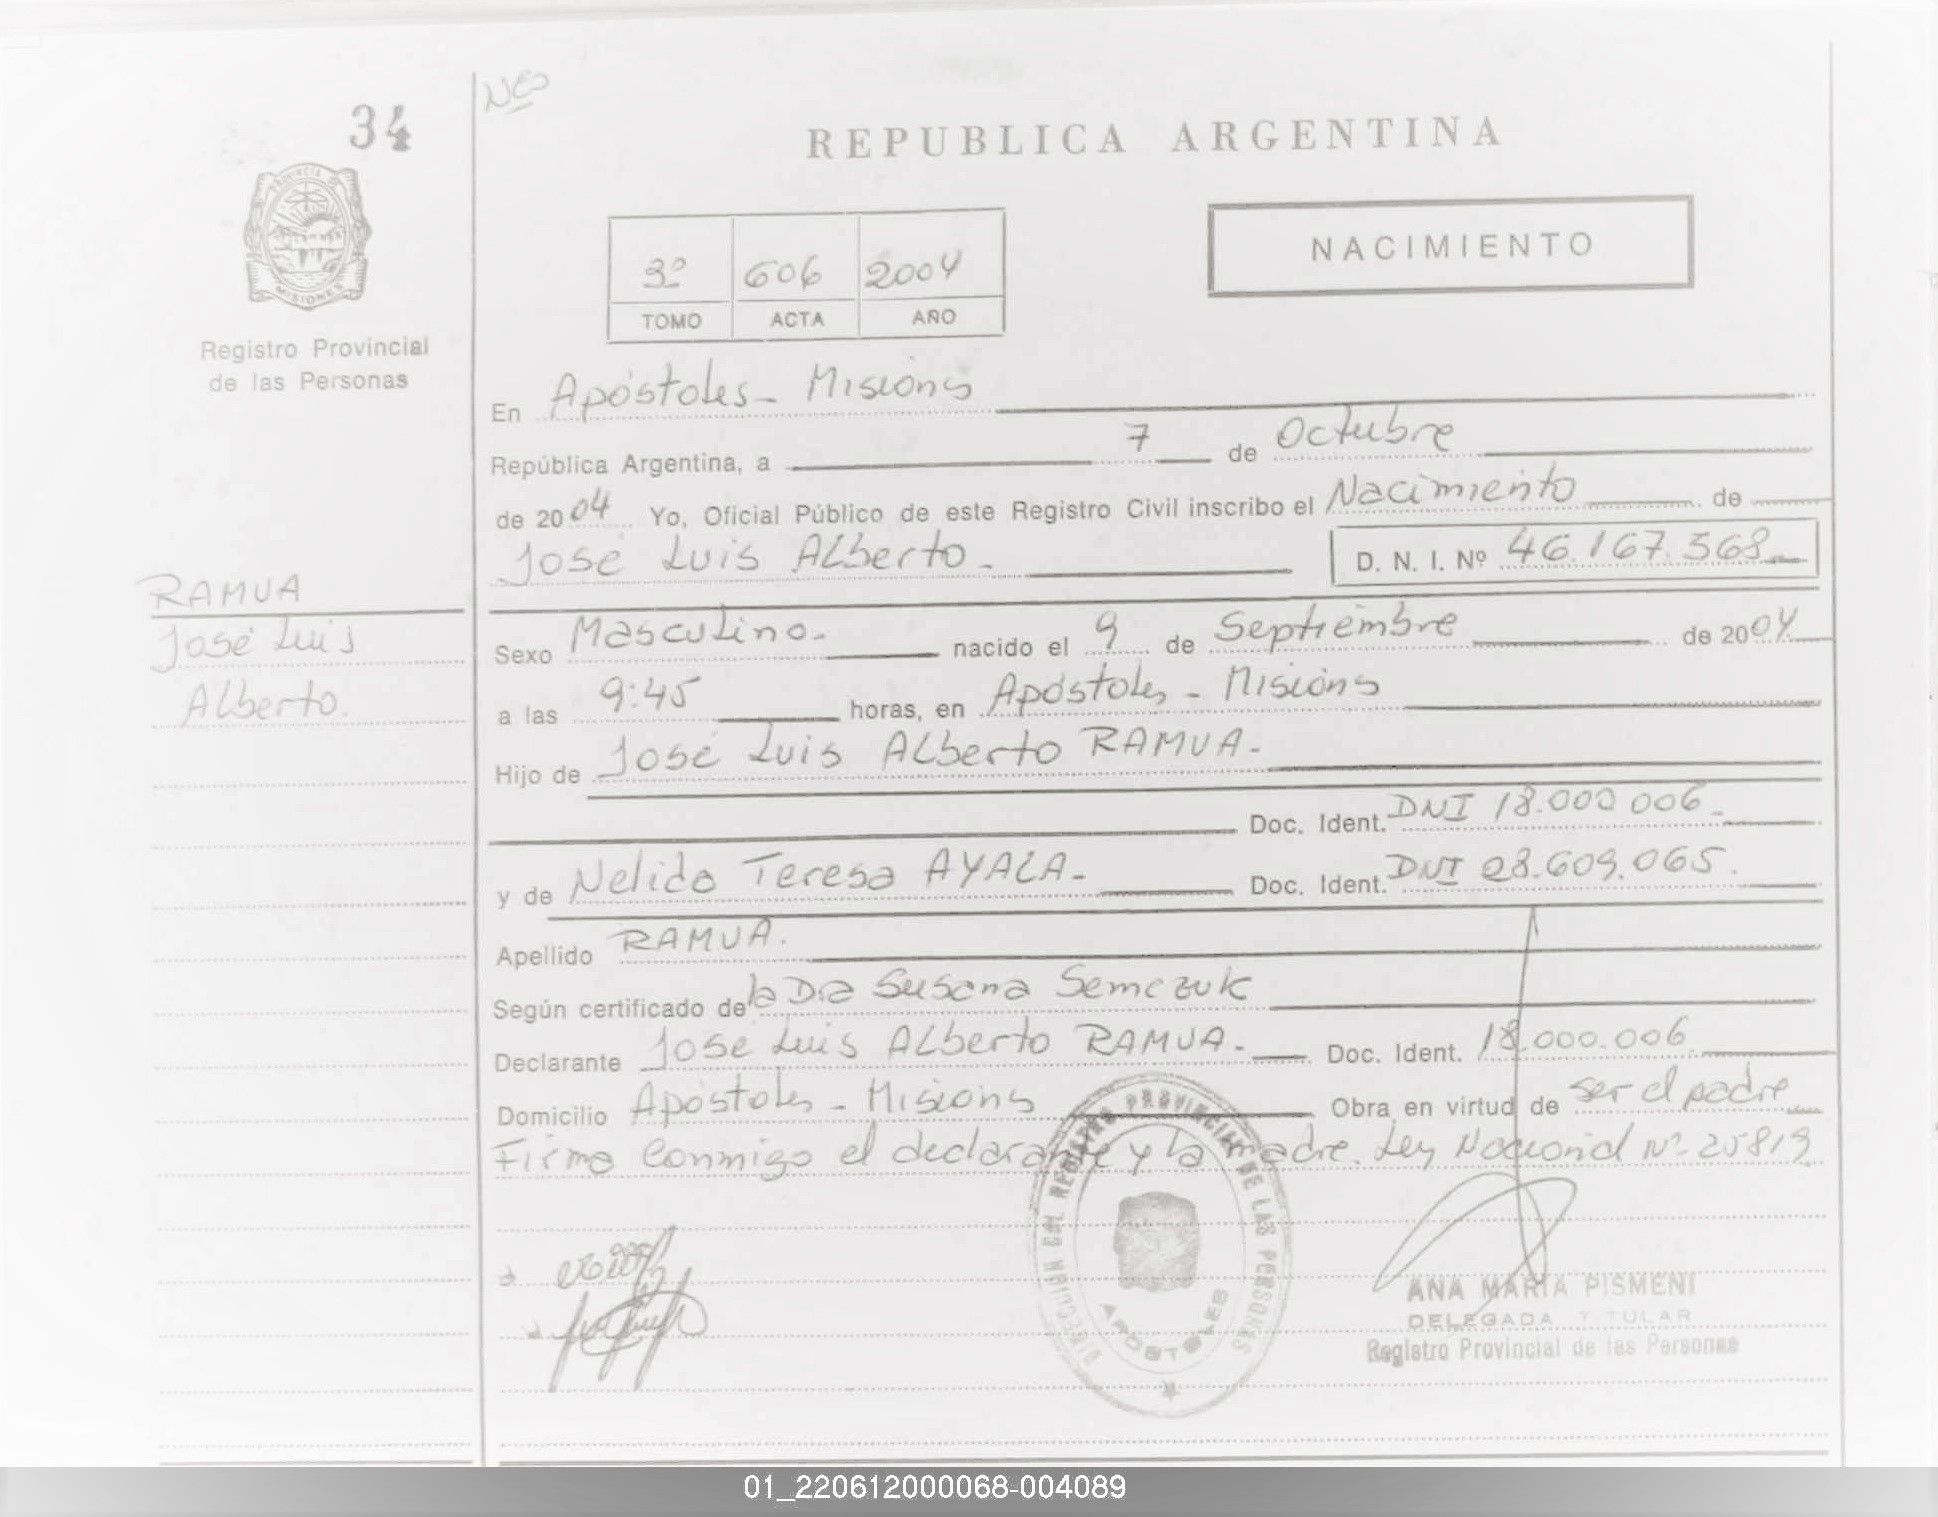 Nes
34
REPUBLICA ARGENTINA
PROVINCIA DE
MISIONES
Registro Provincial
de las Personas
NACIMIENTO
3º 606 2004
TOMO ACTA AÑO
En Apóstoles - Misions
República Argentina, a 7 de Octubre
de 2004 Yo, Oficial Público de este Registro Civil inscribo el Nacimiento de
José Luis Alberto. D. N. I. Nº 46.167.368
RAMUA
José Luis
Alberto.
Sexo Masculino. nacido el 9 de Septiembre de 2004
a las 9:45 horas, en Apóstoles - Misions
Hijo de José Luis Alberto RAMUA.
Doc. Ident. DNI 18.000 006
y de Nelida Teresa AYALA. Doc. Ident. DNI 28.609.065.
Apellido RAMUA.
Según certificado de la Dra Susana Semczuk
Declarante José Luis Alberto RAMUA. Doc. Ident. 18.000.006
Domicilio Apóstoles - Misions Obra en virtud de ser el padre
Firma conmigo el declarante y la madre. Ley Nacional Nº 25819
DIRECCION GRL. REGISTRO PROVINCIAL DE LAS PERSONAS
APOSTOLES
ANA MARIA PISMENI
DELEGADA TITULAR
Registro Provincial de las Personas
01_220612000068-004089